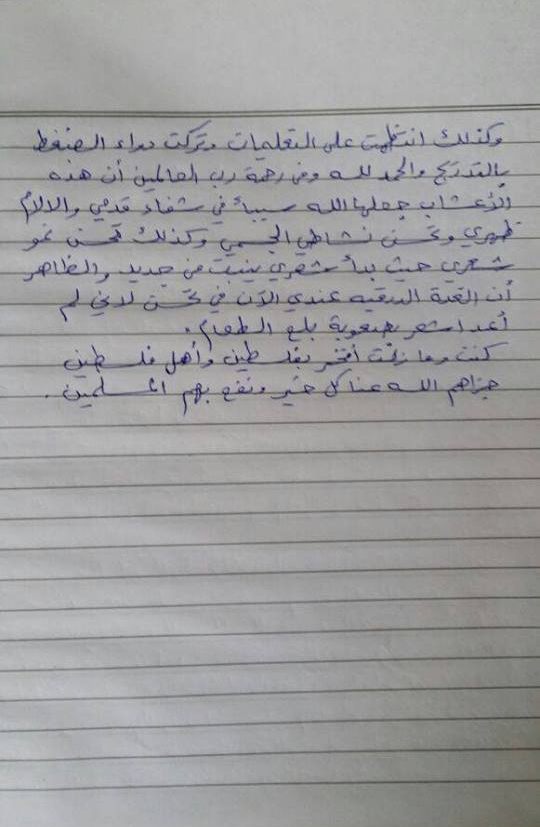 وكذلك انتظمت على التعليمات وتركت دواء الضغط
بالتدريج والحمد لله ومن رحمة رب العالمين أن هذه
الأعشاب جعلها الله سبباً في شفاء قدمي والالام
ظهري وتحسن نشاطي الجسمي وكذلك تحسن نمو
شعري حيث بدأ شعري ينبت من جديد والظاهر
أن الغدة الدرقيه عندي الآن في تحسن لاني لم
أعد اشعر بصعوبة بلع الطعام.
كنت وما زلت أفتخر بفلسطين وأهل فلسطين
جزاهم الله عنا كل خير ونفع بهم المسلمين.